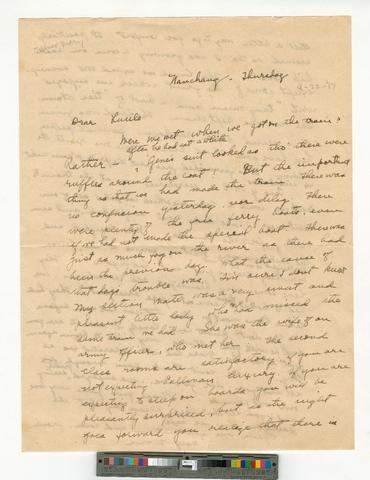 Nanchang - Thursday
Dear Lucile
Were we wet when we got on the train?
after he had sat a while
Rather - " Gene's suit looked as tho' there were
ruffles around the coat. But the important
thing is that we had made the train. There was
no confusion yesterday nor delay. There
were plenty of the free ferry boats, even
if we had not made the special boat. There was
just as much fog on the river as there had
been the previous day. What the cause of
that day's trouble was, I'm sure I don't know
My section mate was a very sweet and
pleasant little lady who had missed the
same train we had. She was the wife of an
army officer, who met her. The second
class rooms are satisfactory if you are
not expecting Pullman luxury. If you are
expecting to sleep on boards you will be
pleasantly surprised, but as the night
goes forward you realize that there is